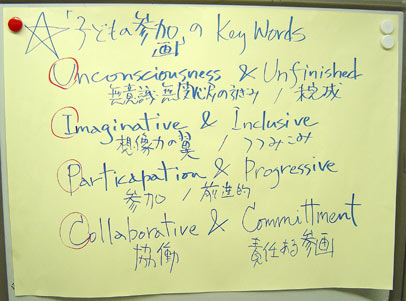 「子どもの参加の Key Words
画」
Unconsciousness & Unfinished
無意識 無関心の / 未完成
Imaginative & Inclusive
想像力の翼 / つつみこみ
Particapation & Progressive
参加 / 前進的
Collaborative & Committment
協働 責任ある参画